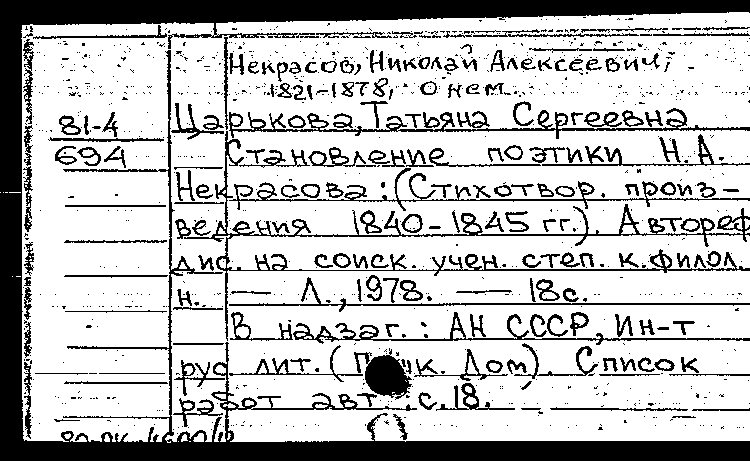 Некрасов, Николай Алексеевич,
1821-1878, о нем.
81-4 Царькова, Татьяна Сергеевна.
694 Становление поэтики Н.А.
Некрасова: (Стихотвор. произ-
ведения 1840-1845 гг.). Автореф
дис. на соиск. учен. степ. к.филол.
н. — Л., 1978. — 18с.
В надзаг.: АН СССР, Ин-т
рус лит. ( Дом). Список
работ авт.: с.18.